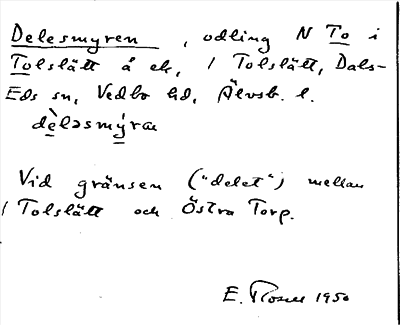 Delesmyren , odling N To i
Tolslätt å ek, 1 Tolslätt, Dals-
Eds sn, Vedbo hd, Älvsb. l.
dèləsmýra
Vid gränsen ("delet") mellan
1 Tolslätt och Östra Torp.
E. 1950